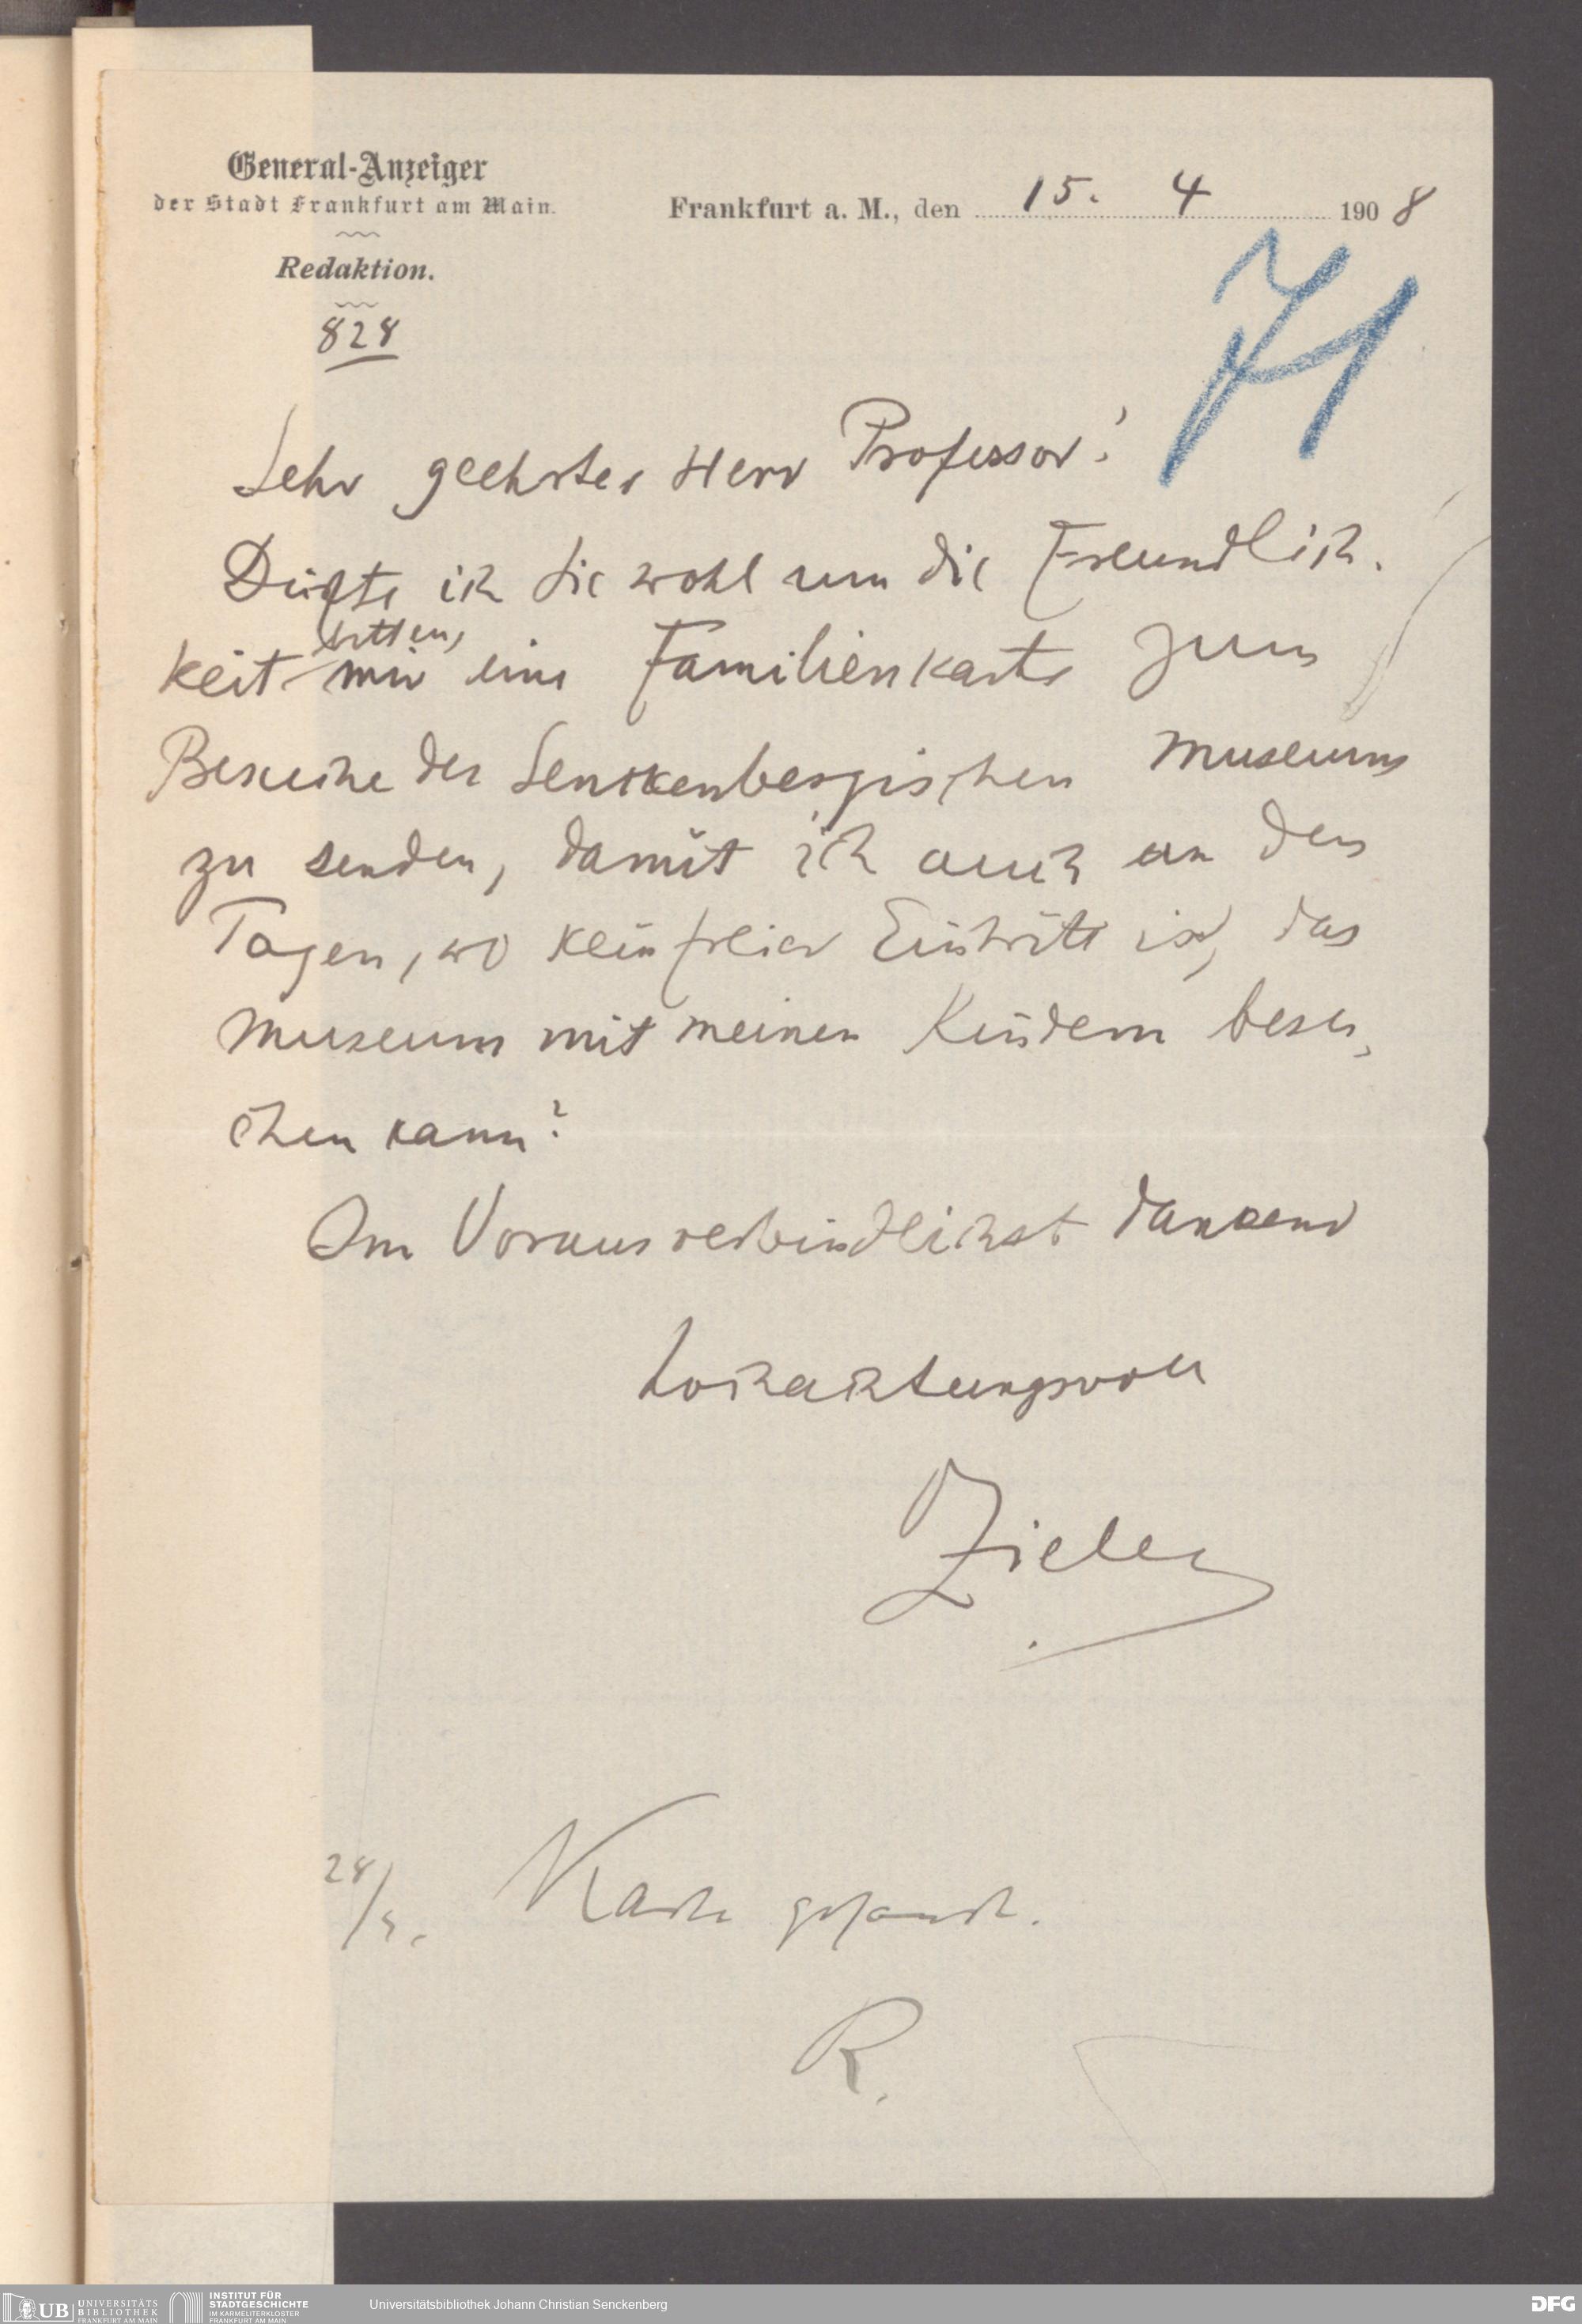 General-Anzeiger
der Stadt Frankfurt am Main.
Redaktion.
828
Frankfurt a. M., den 15. 4 1908
71
Sehr geehrter Herr Professor!
Dürfte ich Sie wohl um die Freundlich-
bitten,
keit mir eine Familienkarte zum
Besuche des Senckenbergischen Museums
zu senden, damit ich auch an den
Tagen, wo kein freier Eintritt ist, das
Museum mit meinen Kindern besu-
chen kann?
Im Voraus verbindlichst dankend
hochachtungsvoll
Zieler
28/4. Karte gesandt.
R.
UB UNIVERSITÄTS
BIBLIOTHEK
FRANKFURT AM MAIN
INSTITUT FÜR
STADTGESCHICHTE
IM KARMELITERKLOSTER
FRANKFURT AM MAIN
Universitätsbibliothek Johann Christian Senckenberg
DFG